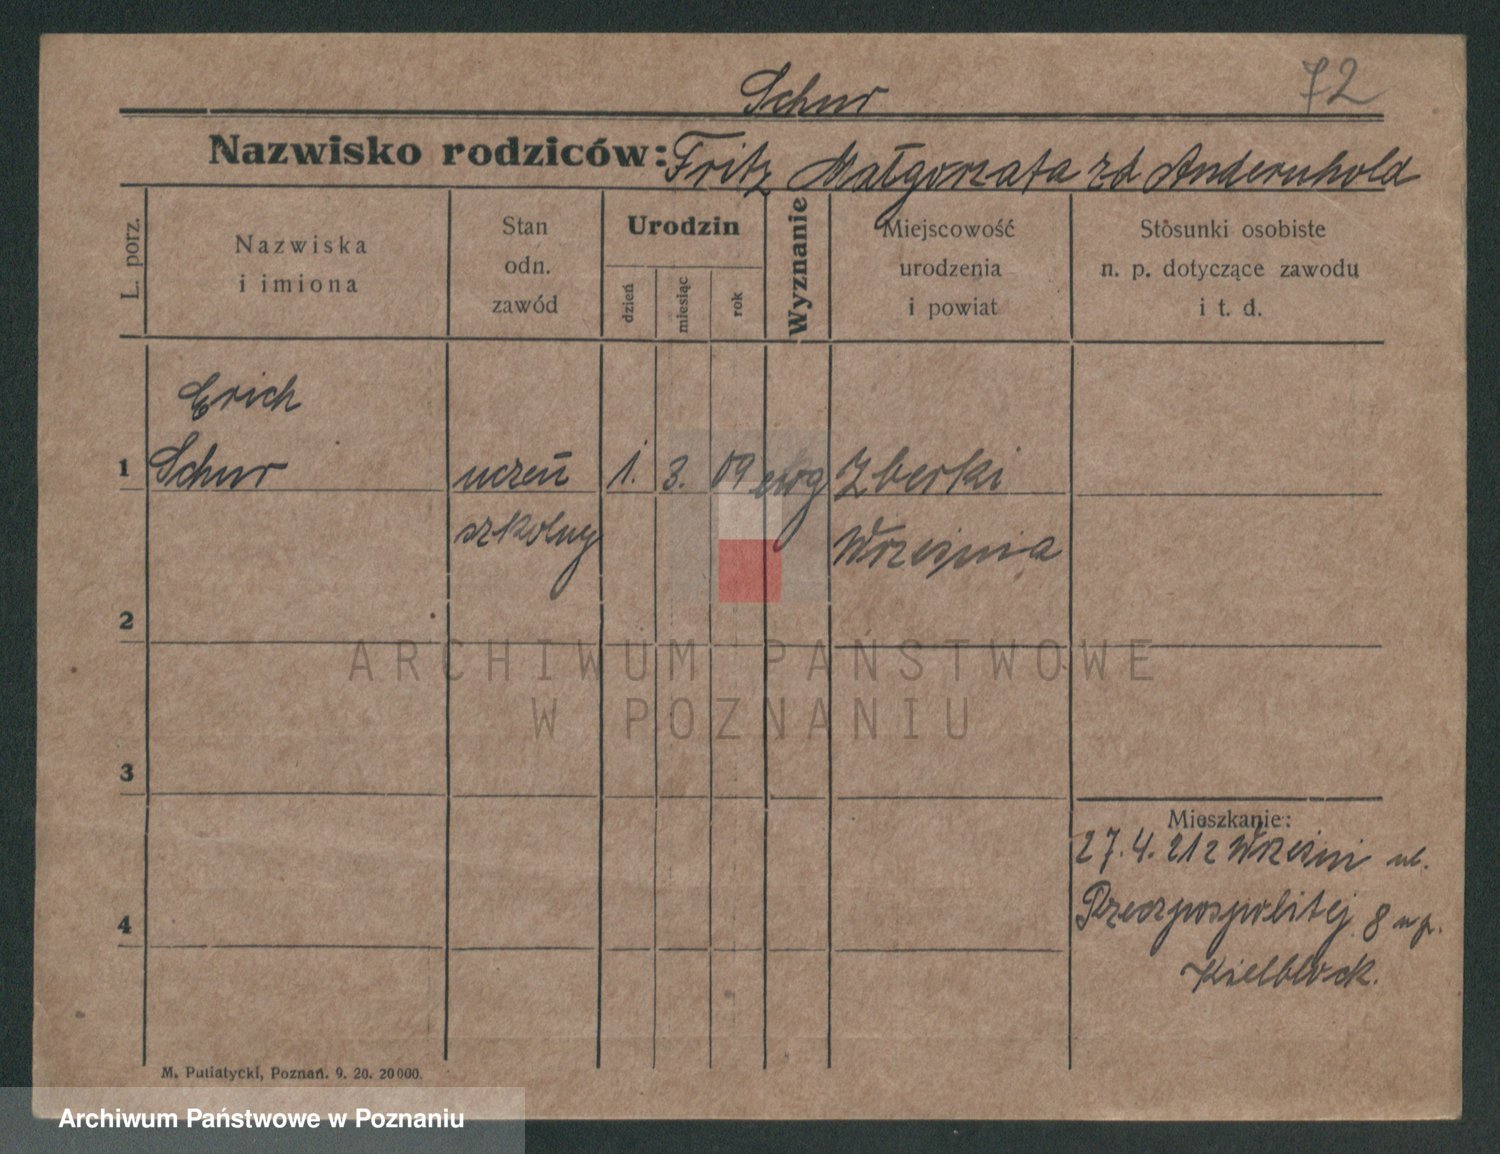 72
Schur
Nazwisko rodziców: Fritz Małgorzata zd Andernhold
L. porz.
Nazwiska
i imiona
Stan
odn.
zawód
Urodzin
dzień
miesiąc
rok
Wyznanie
Miejscowość
urodzenia
i powiat
Stosunki osobiste
n. p. dotyczące zawodu
i t. d.
Erich
1 Schur uczeń 1. 3. 09 ewg Zberki
szkolny Września
2
ARCHIWUM PAŃSTWOWE
W POZNANIU
3
Mieszkanie:
27.4.21 z Wrześni ul.
Rzeczpospolitej 8 u p.
Kielblock.
4
M. Putiatycki, Poznań. 9. 20. 20000.
Archiwum Państwowe w Poznaniu